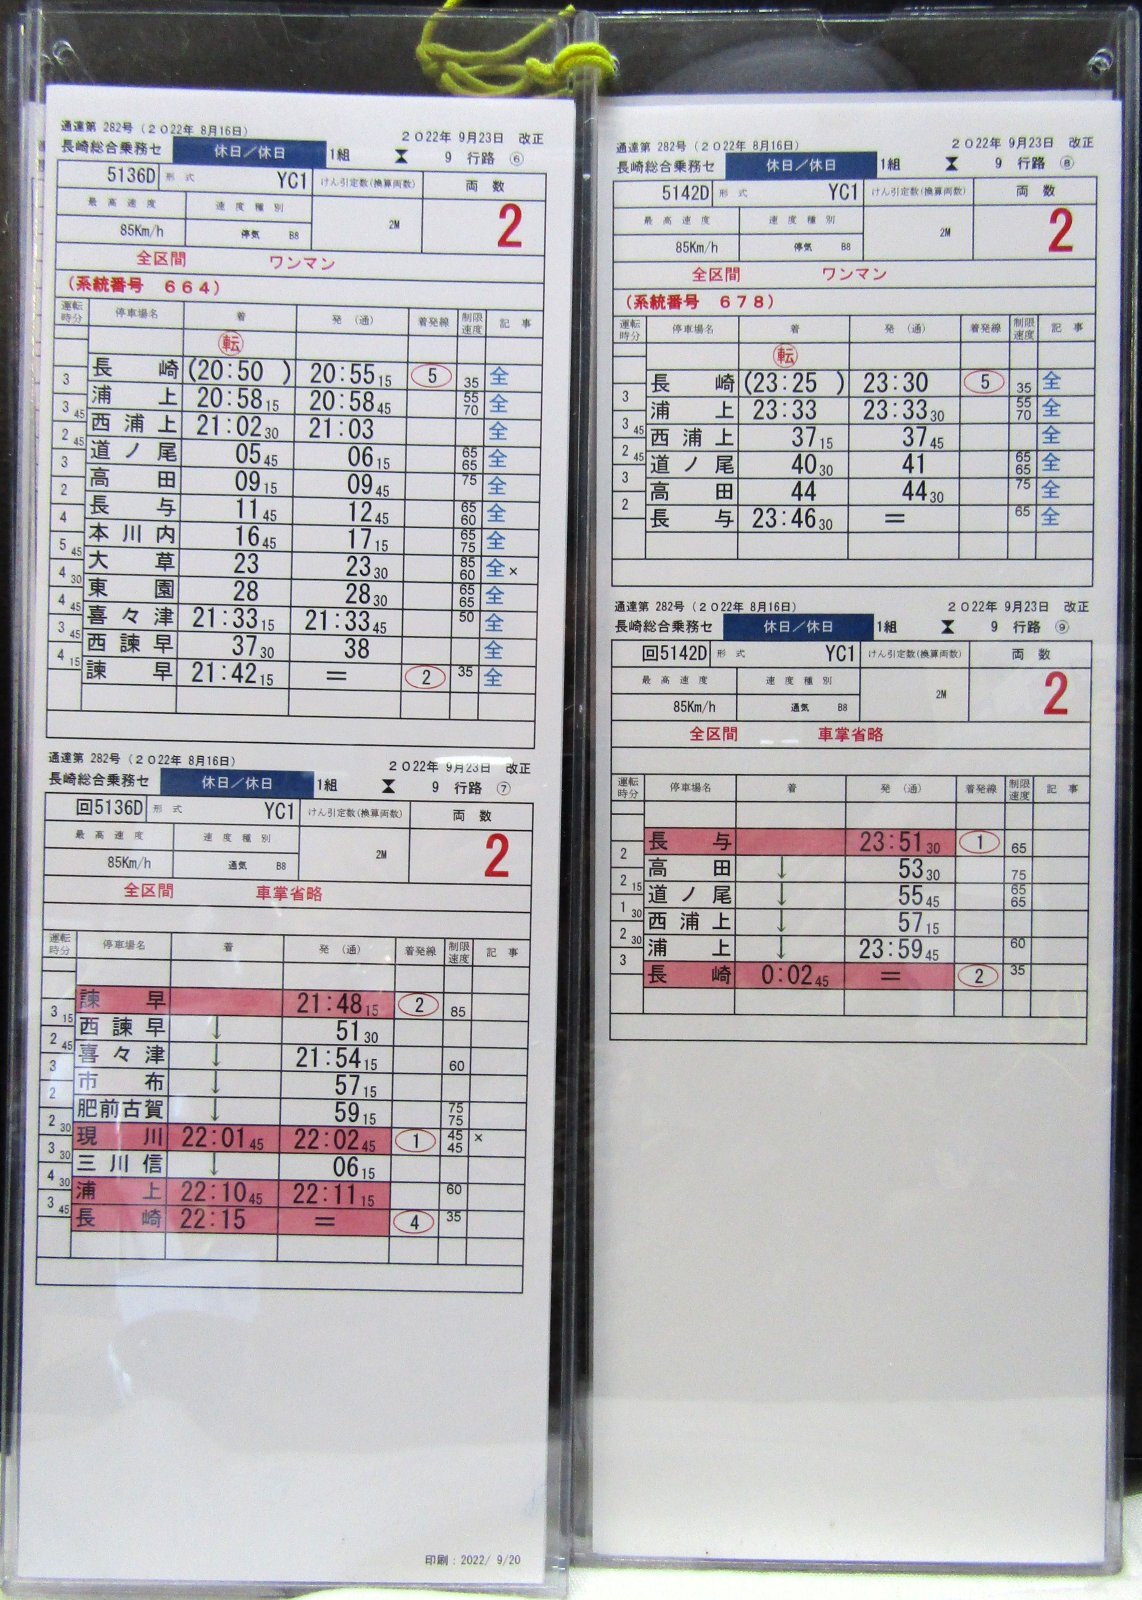 通達第 282号 (２０２２年 8月16日)
２０２２年 9月23日 改正
長崎総合乗務セ 休日／休日 1組 9 行路 ⑥
5136D 形 式 YC1 けん引定数(換算両数) 両 数
最 高 速 度 速 度 種 別 2M 2
85Km/h 停気 B8
全区間 ワンマン
(系統番号 ６６４)
運転時分 停車場名 着 発 (通) 着発線 制限速度 記 事
転
長 崎 (20:50 ) 20:55 15 5 35 全
3
浦 上 20:58 15 20:58 45 55 70 全
3 45
西 浦 上 21:02 30 21:03 全
2 45
道 ノ 尾 05 45 06 15 65 65 全
3
高 田 09 15 09 45 75 全
2
長 与 11 45 12 45 65 60 全
4
本 川 内 16 45 17 15 65 75 全
5 45
大 草 23 23 30 85 60 全 ×
4 30
東 園 28 28 30 65 65 全
4 45
喜 々 津 21:33 15 21:33 45 50 全
3 45
西 諫 早 37 30 38 全
4 15
諫 早 21:42 15 ＝ 2 35 全
通達第 282号 (２０２２年 8月16日)
２０２２年 9月23日 改正
長崎総合乗務セ 休日／休日 1組 9 行路 ⑦
回5136D 形 式 YC1 けん引定数(換算両数) 両 数
最 高 速 度 速 度 種 別 2M 2
85Km/h 通気 B8
全区間 車掌省略
運転時分 停車場名 着 発 (通) 着発線 制限速度 記 事
諫 早 21:48 15 2 85
3 15
西 諫 早 ↓ 51 30
2 45
喜 々 津 ↓ 21:54 15 60
3
市 布 ↓ 57 15
2
肥前古賀 ↓ 59 15 75 75
2 30
現 川 22:01 45 22:02 45 1 45 45 ×
3 30
三 川 信 ↓ 06 15
4 30
浦 上 22:10 45 22:11 15 60
3 45
長 崎 22:15 ＝ 4 35
印刷：2022/ 9/20
通達第 282号 (２０２２年 8月16日)
２０２２年 9月23日 改正
長崎総合乗務セ 休日／休日 1組 9 行路 ⑧
5142D 形 式 YC1 けん引定数(換算両数) 両 数
最 高 速 度 速 度 種 別 2M 2
85Km/h 停気 B8
全区間 ワンマン
(系統番号 ６７８)
運転時分 停車場名 着 発 (通) 着発線 制限速度 記 事
転
長 崎 (23:25 ) 23:30 5 35 全
3
浦 上 23:33 23:33 30 55 70 全
3 45
西 浦 上 37 15 37 45 全
2 45
道 ノ 尾 40 30 41 65 65 全
3
高 田 44 44 30 75 全
2
長 与 23:46 30 ＝ 65 全
通達第 282号 (２０２２年 8月16日)
２０２２年 9月23日 改正
長崎総合乗務セ 休日／休日 1組 9 行路 ⑨
回5142D 形 式 YC1 けん引定数(換算両数) 両 数
最 高 速 度 速 度 種 別 2M 2
85Km/h 通気 B8
全区間 車掌省略
運転時分 停車場名 着 発 (通) 着発線 制限速度 記 事
長 与 23:51 30 1 65
2
高 田 ↓ 53 30 75
2 15
道 ノ 尾 ↓ 55 45 65 65
1 30
西 浦 上 ↓ 57 15
2 30
浦 上 ↓ 23:59 45 60
3
長 崎 0:02 45 ＝ 2 35